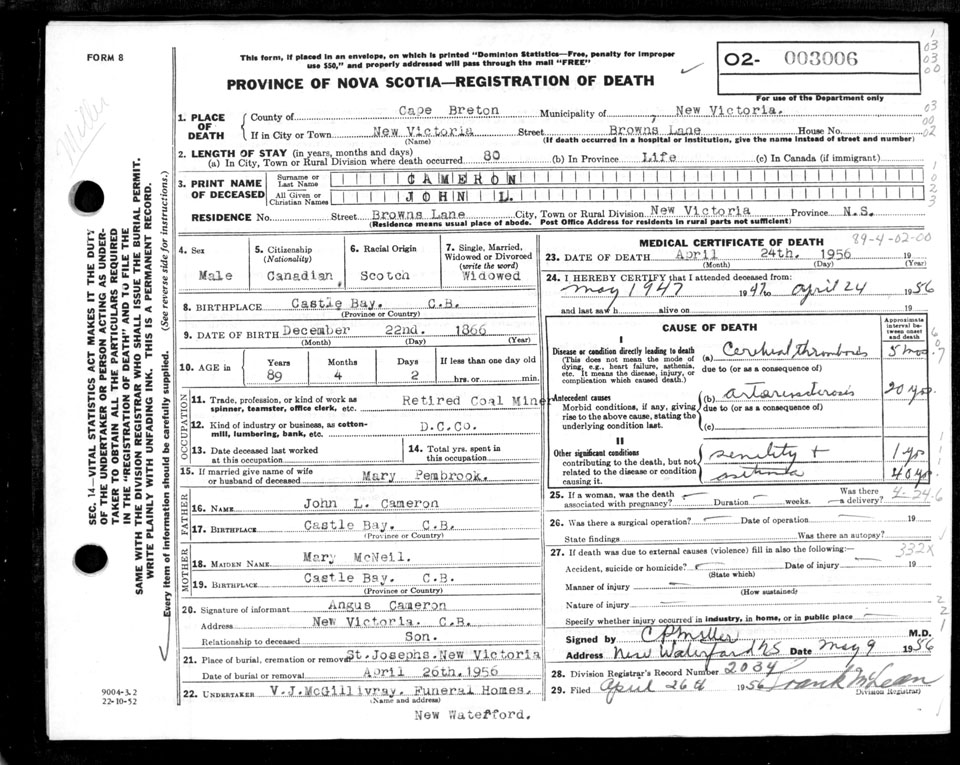 FORM 8
This form, if placed in an envelope, on which is printed "Dominion Statistics—Free, penalty for improper
use $50," and properly addressed will pass through the mail "FREE"
02- 003006
For use of the Department only
PROVINCE OF NOVA SCOTIA—REGISTRATION OF DEATH
Miller
SEC. 14—VITAL STATISTICS ACT MAKES IT THE DUTY
OF THE UNDERTAKER OR PERSON ACTING AS UNDER-
TAKER TO OBTAIN ALL THE PARTICULARS REQUIRED
IN THE "REGISTRATION OF DEATH" AND TO FILE THE
SAME WITH THE DIVISION REGISTRAR WHO SHALL ISSUE THE BURIAL PERMIT.
WRITE PLAINLY WITH UNFADING INK. THIS IS A PERMANENT RECORD.
Every item of information should be carefully supplied. (See reverse side for instructions.)
1. PLACE OF DEATH
County of Cape Breton Municipality of New Victoria.
If in City or Town New Victoria Street Browns Lane House No.
(Name) (If death occurred in a hospital or institution, give the name instead of street and number)
2. LENGTH OF STAY (in years, months and days)
(a) In City, Town or Rural Division where death occurred 80 (b) In Province Life (c) In Canada (if immigrant)
3. PRINT NAME OF DECEASED
Surname or Last Name CAMERON
All Given or Christian Names JOHN L.
RESIDENCE No. Street Browns Lane City, Town or Rural Division New Victoria Province N.S.
(Residence means usual place of abode. Post Office Address for residents in rural parts not sufficient)
4. Sex Male
5. Citizenship (Nationality) Canadian
6. Racial Origin Scotch
7. Single, Married, Widowed or Divorced (write the word) Widowed
8. BIRTHPLACE Castle Bay. C.B.
(Province or Country)
9. DATE OF BIRTH December 22nd. 1866
(Month) (Day) (Year)
10. AGE in Years Months Days If less than one day old
89 4 2 hrs. or min.
OCCUPATION
11. Trade, profession, or kind of work as spinner, teamster, office clerk, etc. Retired Coal Miner
12. Kind of industry or business, as cotton-mill, lumbering, bank, etc. D.C.Co.
13. Date deceased last worked at this occupation
14. Total yrs. spent in this occupation
15. If married give name of wife or husband of deceased Mary Pembrook.
FATHER
16. NAME John L. Cameron
17. BIRTHPLACE Castle Bay. C.B.
(Province or Country)
MOTHER
18. MAIDEN NAME Mary McNeil.
19. BIRTHPLACE Castle Bay. C.B.
(Province or Country)
20. Signature of informant Angus Cameron
Address New Victoria. C.B.
Relationship to deceased Son.
21. Place of burial, cremation or removal St.Josephs.New Victoria
Date of burial or removal April 26th.1956
22. UNDERTAKER V.J.McGillivray. Funeral Homes.
(Name and address)
New Watefford.
9004-3.2
22-10-52
MEDICAL CERTIFICATE OF DEATH 89-4-02-00
23. DATE OF DEATH April 24th. 1956 19
(Month) (Day) (Year)
24. I HEREBY CERTIFY that I attended deceased from:
May 1947 1947 to April 24 1956
and last saw h alive on 19
CAUSE OF DEATH
Approximate interval between onset and death
I
Disease or condition directly leading to death
(This does not mean the mode of dying, e.g., heart failure, asthenia, etc. It means the disease, injury, or complication which caused death.)
(a) Cerebral thrombosis 5 mos.
due to (or as a consequence of)
Antecedent causes
Morbid conditions, if any, giving rise to the above cause, stating the underlying condition last.
(b) arteriosclerosis 20 yrs.
due to (or as a consequence of)
(c)
II
Other significant conditions
contributing to the death, but not related to the disease or condition causing it.
senility + 1 yr
asthma 40 yr.
25. If a woman, was the death associated with pregnancy? Duration weeks. Was there a delivery? 4-24-6
26. Was there a surgical operation? Date of operation 19
State findings Was there an autopsy?
27. If death was due to external causes (violence) fill in also the following:— 332X
Accident, suicide or homicide? Date of injury 19
(State which)
Manner of injury
(How sustained)
Nature of injury
Specify whether injury occurred in industry, in home, or in public place
Signed by C P Miller M.D.
Address New Waterford NS Date May 9 1956
28. Division Registrar's Record Number 2034
29. Filed April 26th 1956 Frank McLean
Division Registrar